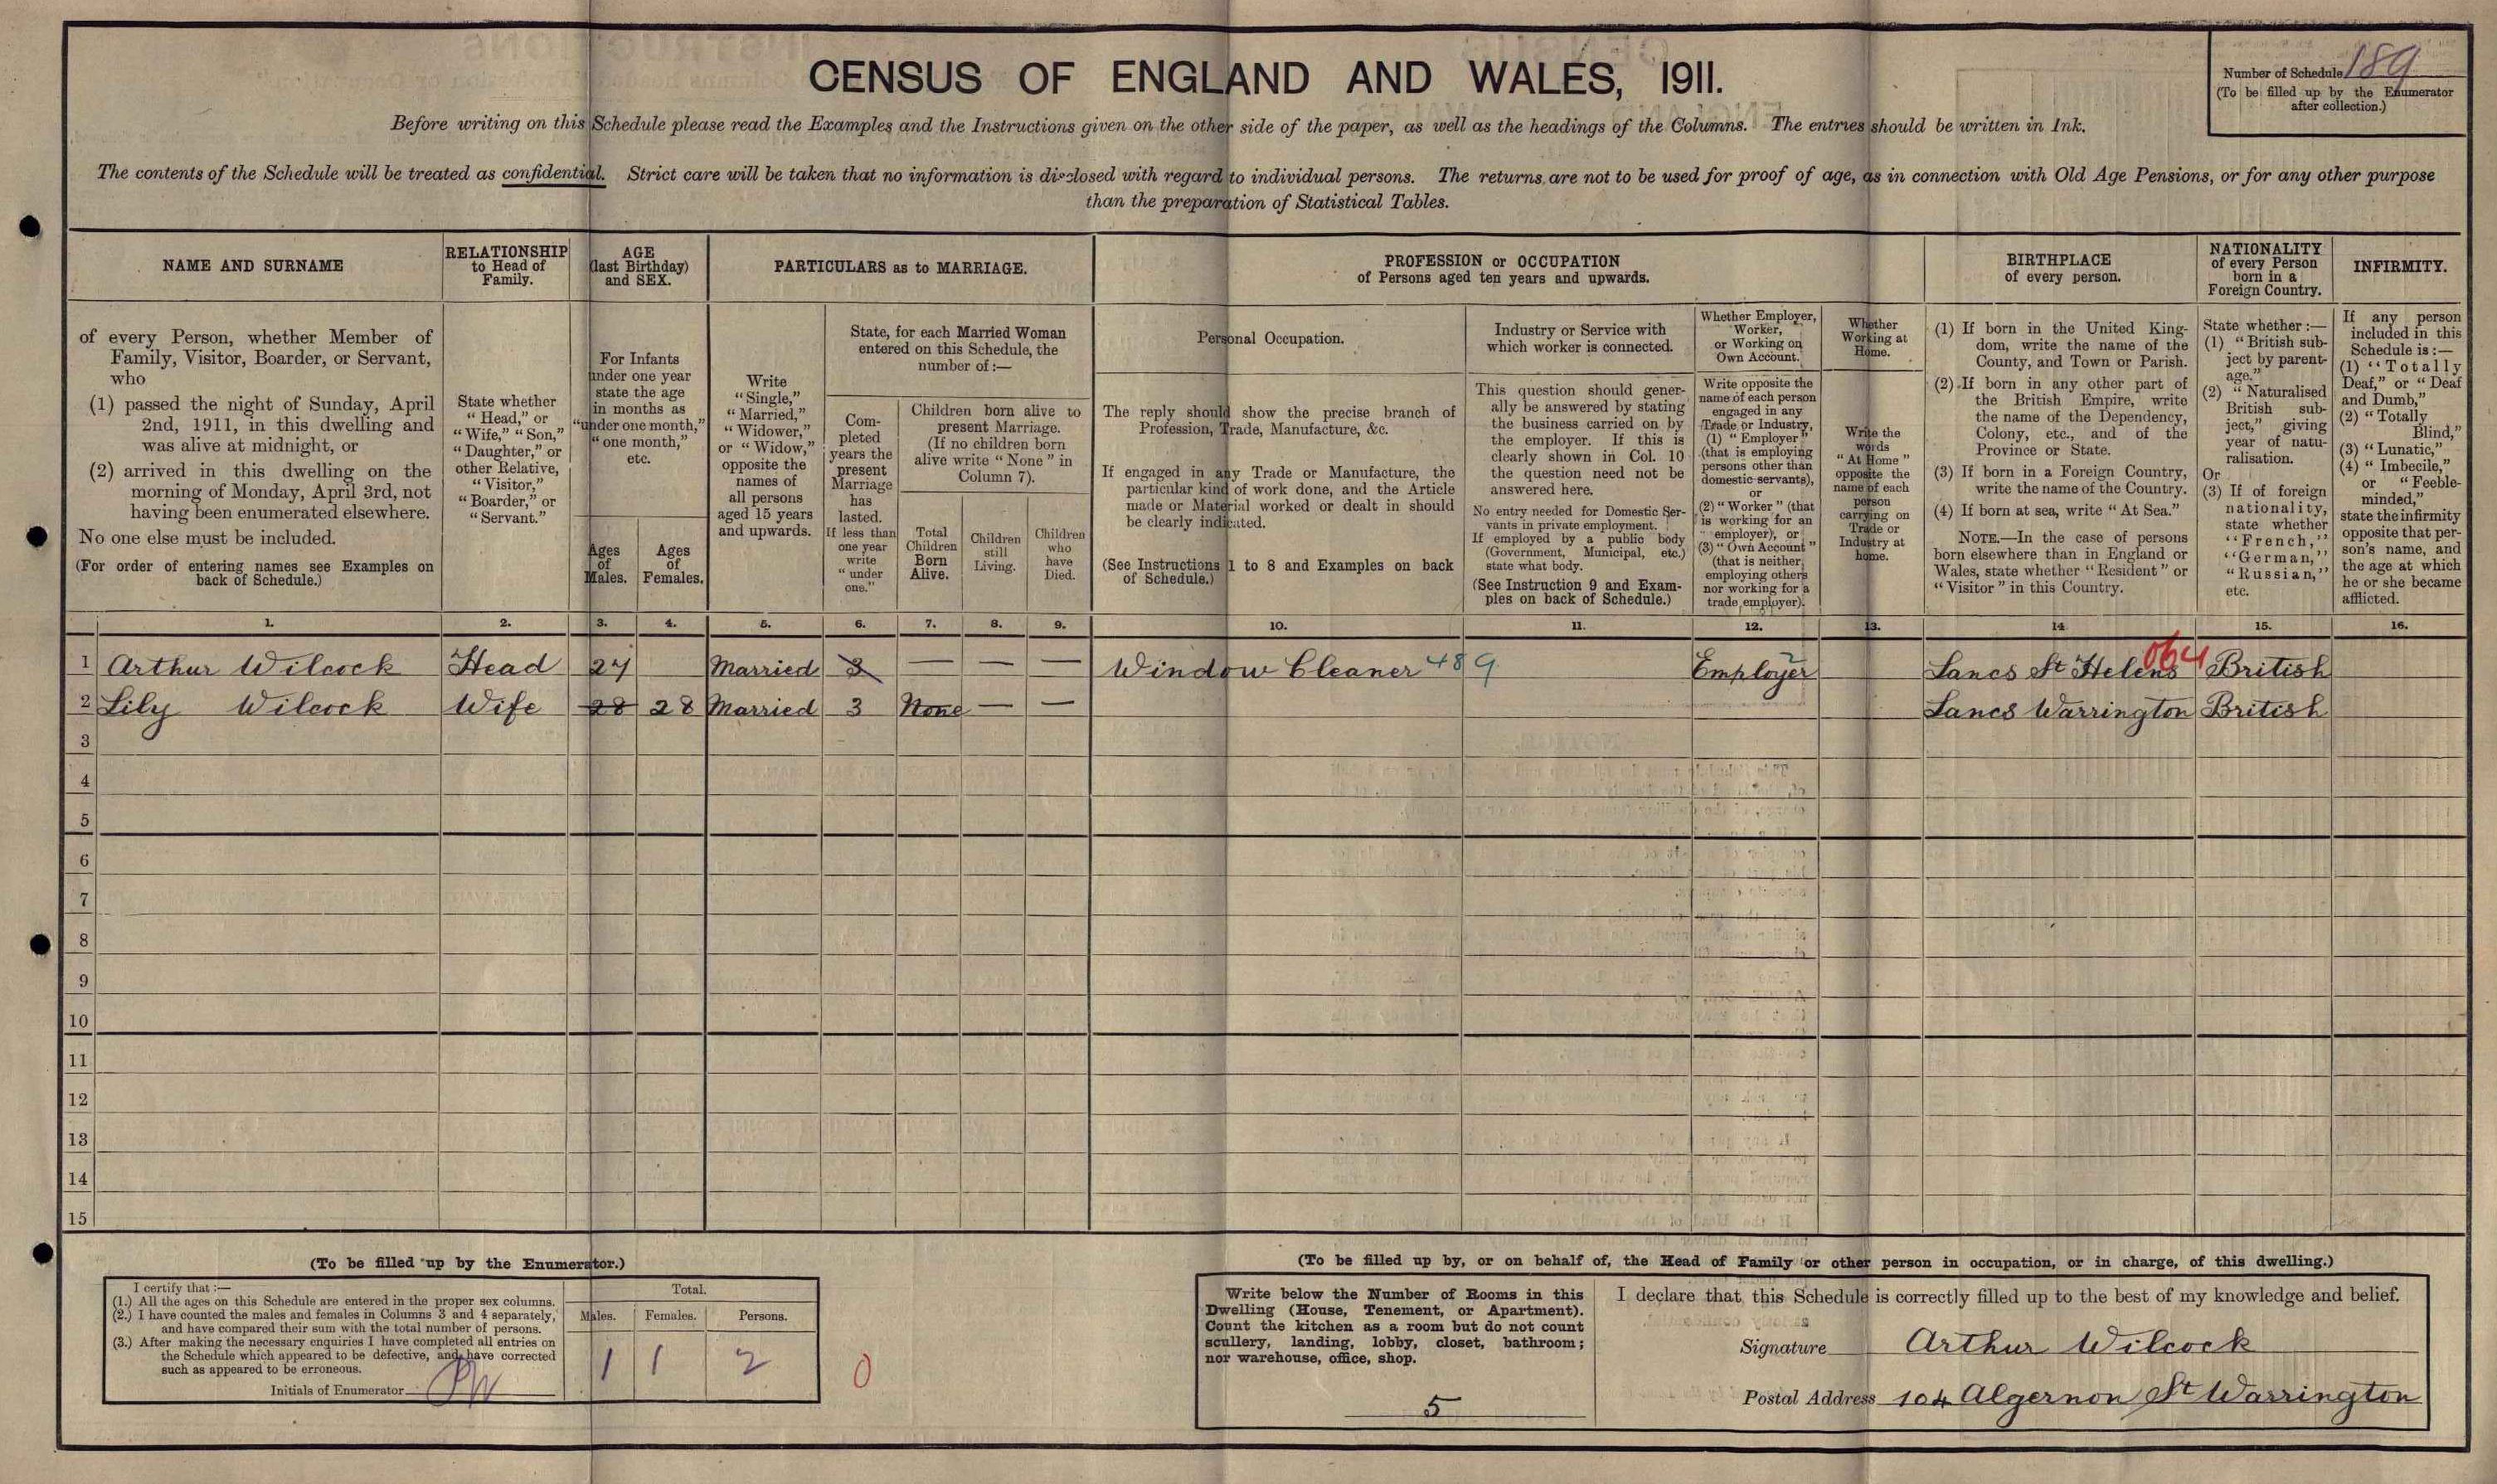 CENSUS OF ENGLAND AND WALES, 1911.
Number of Schedule 189
(To be filled up by the Enumerator
after collection.)
Before writing on this Schedule please read the Examples and the Instructions given on the other side of the paper, as well as the headings of the Columns. The entries should be written in Ink.
The contents of the Schedule will be treated as confidential. Strict care will be taken that no information is disclosed with regard to individual persons. The returns are not to be used for proof of age, as in connection with Old Age Pensions, or for any other purpose
than the preparation of Statistical Tables.
NAME AND SURNAME
of every Person, whether Member of
Family, Visitor, Boarder, or Servant,
who
(1) passed the night of Sunday, April
2nd, 1911, in this dwelling and
was alive at midnight, or
(2) arrived in this dwelling on the
morning of Monday, April 3rd, not
having been enumerated elsewhere.
No one else must be included.
(For order of entering names see Examples on
back of Schedule.)
RELATIONSHIP
to Head of
Family.
State whether
"Head," or
"Wife," "Son,"
"Daughter," or
other Relative,
"Visitor,"
"Boarder," or
"Servant."
AGE
(last Birthday)
and SEX.
For Infants
under one year
state the age
in months as
"under one month,"
"one month,"
etc.
Ages
of
Males.
Ages
of
Females.
PARTICULARS as to MARRIAGE.
Write
"Single,"
"Married,"
"Widower,"
or "Widow,"
opposite the
names of
all persons
aged 15 years
and upwards.
State, for each Married Woman
entered on this Schedule, the
number of :—
Com-
pleted
years the
present
Marriage
has
lasted.
If less than
one year
write
"under
one."
Children born alive to
present Marriage.
(If no children born
alive write "None" in
Column 7).
Total
Children
Born
Alive.
Children
still
Living.
Children
who
have
Died.
PROFESSION or OCCUPATION
of Persons aged ten years and upwards.
Personal Occupation.
The reply should show the precise branch of
Profession, Trade, Manufacture, &c.
If engaged in any Trade or Manufacture, the
particular kind of work done, and the Article
made or Material worked or dealt in should
be clearly indicated.
(See Instructions 1 to 8 and Examples on back
of Schedule.)
Industry or Service with
which worker is connected.
This question should gener-
ally be answered by stating
the business carried on by
the employer. If this is
clearly shown in Col. 10
the question need not be
answered here.
No entry needed for Domestic Ser-
vants in private employment.
If employed by a public body
(Government, Municipal, etc.)
state what body.
(See Instruction 9 and Exam-
ples on back of Schedule.)
Whether Employer,
Worker,
or Working on
Own Account.
Write opposite the
name of each person
engaged in any
Trade or Industry,
(1) "Employer"
(that is employing
persons other than
domestic servants),
or
(2) "Worker" (that
is working for an
employer), or
(3) "Own Account"
(that is neither
employing others
nor working for a
trade employer).
Whether
Working at
Home.
Write the
words
"At Home"
opposite the
name of each
person
carrying on
Trade or
Industry at
home.
BIRTHPLACE
of every person.
(1) If born in the United King-
dom, write the name of the
County, and Town or Parish.
(2) If born in any other part of
the British Empire, write
the name of the Dependency,
Colony, etc., and of the
Province or State.
(3) If born in a Foreign Country,
write the name of the Country.
(4) If born at sea, write "At Sea."
NOTE.—In the case of persons
born elsewhere than in England or
Wales, state whether "Resident" or
"Visitor" in this Country.
NATIONALITY
of every Person
born in a
Foreign Country.
State whether :—
(1) "British sub-
ject by parent-
age."
(2) "Naturalised
British sub-
ject," giving
year of natu-
ralisation.
Or
(3) If of foreign
nationality,
state whether
"French,"
"German,"
"Russian,"
etc.
INFIRMITY.
If any person
included in this
Schedule is :—
(1) "Totally
Deaf," or "Deaf
and Dumb,"
(2) "Totally
Blind,"
(3) "Lunatic,"
(4) "Imbecile,"
or "Feeble-
minded,"
state the infirmity
opposite that per-
son's name, and
the age at which
he or she became
afflicted.
1. 2. 3. 4. 5. 6. 7. 8. 9. 10. 11. 12. 13. 14. 15. 16.
1 Arthur Wilcock Head 27 Married 3 — — — Window Cleaner 489 Employer 2 Lancs St Helens 064 British
2 Lily Wilcock Wife 28 28 Married 3 None — — Lancs Warrington British
3
4
5
6
7
8
9
10
11
12
13
14
15
(To be filled up by the Enumerator.)
I certify that :—
(1.) All the ages on this Schedule are entered in the proper sex columns.
(2.) I have counted the males and females in Columns 3 and 4 separately,
and have compared their sum with the total number of persons.
(3.) After making the necessary enquiries I have completed all entries on
the Schedule which appeared to be defective, and have corrected
such as appeared to be erroneous.
Initials of Enumerator
Total.
Males. Females. Persons.
1 1 2
0
(To be filled up by, or on behalf of, the Head of Family or other person in occupation, or in charge, of this dwelling.)
Write below the Number of Rooms in this
Dwelling (House, Tenement, or Apartment).
Count the kitchen as a room but do not count
scullery, landing, lobby, closet, bathroom;
nor warehouse, office, shop.
5
I declare that this Schedule is correctly filled up to the best of my knowledge and belief.
Signature Arthur Wilcock
Postal Address 104 Algernon St Warrington